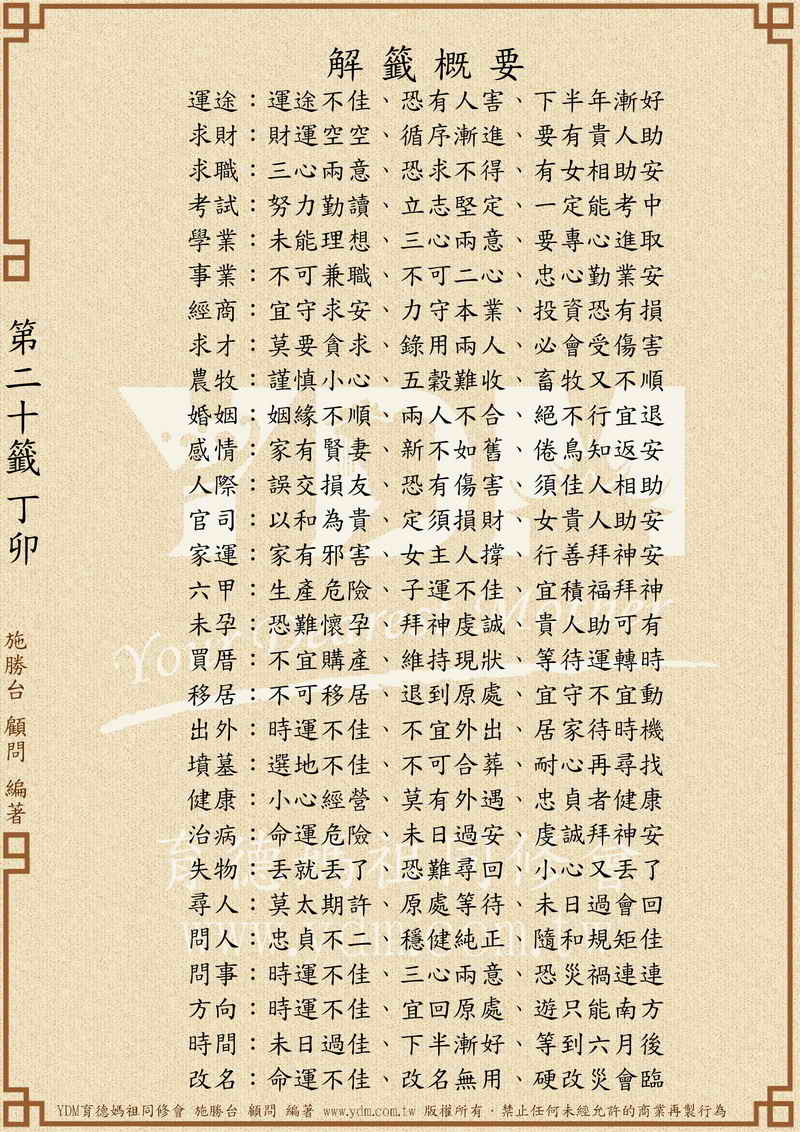 解籤概要
運途：運途不佳、恐有人害、下半年漸好
求財：財運空空、循序漸進、要有貴人助
求職：三心兩意、恐求不得、有女相助安
考試：努力勤讀、立志堅定、一定能考中
學業：未能理想、三心兩意、要專心進取
事業：不可兼職、不可二心、忠心勤業安
經商：宜守求安、力守本業、投資恐有損
求才：莫要貪求、錄用兩人、必會受傷害
農牧：謹慎小心、五穀難收、畜牧又不順
婚姻：姻緣不順、兩人不合、絕不行宜退
感情：家有賢妻、新不如舊、倦鳥知返安
人際：誤交損友、恐有傷害、須佳人相助
官司：以和為貴、定須損財、女貴人助安
家運：家有邪害、女主人撐、行善拜神安
六甲：生產危險、子運不佳、宜積福拜神
未孕：恐難懷孕、拜神虔誠、貴人助可有
買厝：不宜購產、維持現狀、等待運轉時
移居：不可移居、退到原處、宜守不宜動
出外：時運不佳、不宜外出、居家待時機
墳墓：選地不佳、不可合葬、耐心再尋找
健康：小心經營、莫有外遇、忠貞者健康
治病：命運危險、未日過安、虔誠拜神安
失物：丟就丟了、恐難尋回、小心又丟了
尋人：莫太期許、原處等待、未日過會回
問人：忠貞不二、穩健純正、隨和規矩佳
問事：時運不佳、三心兩意、恐災禍連連
方向：時運不佳、宜回原處、遊只能南方
時間：未日過佳、下半漸好、等到六月後
改名：命運不佳、改名無用、硬改災會臨
第二十籤 丁卯
施勝台 顧問 編著
YDM
Your Dearest Mother
育德媽祖同修會
www.ydm.com.tw
YDM育德媽祖同修會 施勝台 顧問 編著 www.ydm.com.tw 版權所有．禁止任何未經允許的商業再製行為